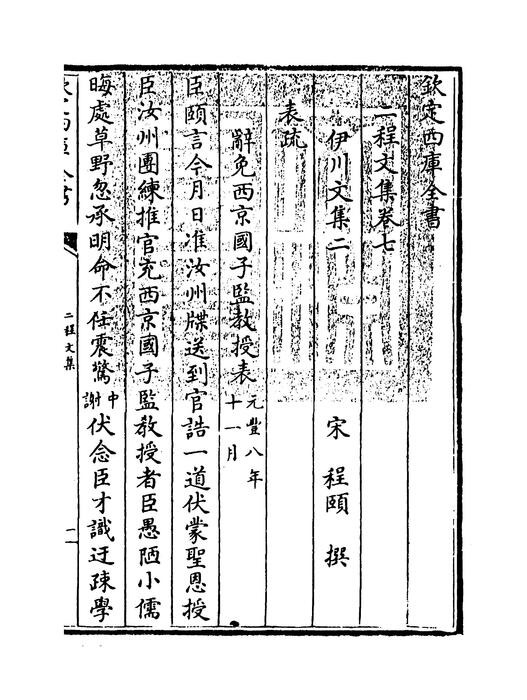 欽定四庫全書
二程文集卷七
伊川文集二 宋 程頤 撰
表疏
辭免西京國子監教授表元豐八年十一月
臣頤言今月日准汝州牒送到官誥一道伏蒙聖恩授
臣汝州團練推官充西京國子監教授者臣愚陋小儒
晦處草野忽承明命不任震驚中謝伏念臣才識迂疎學
欽定四庫全書
二程文集
一